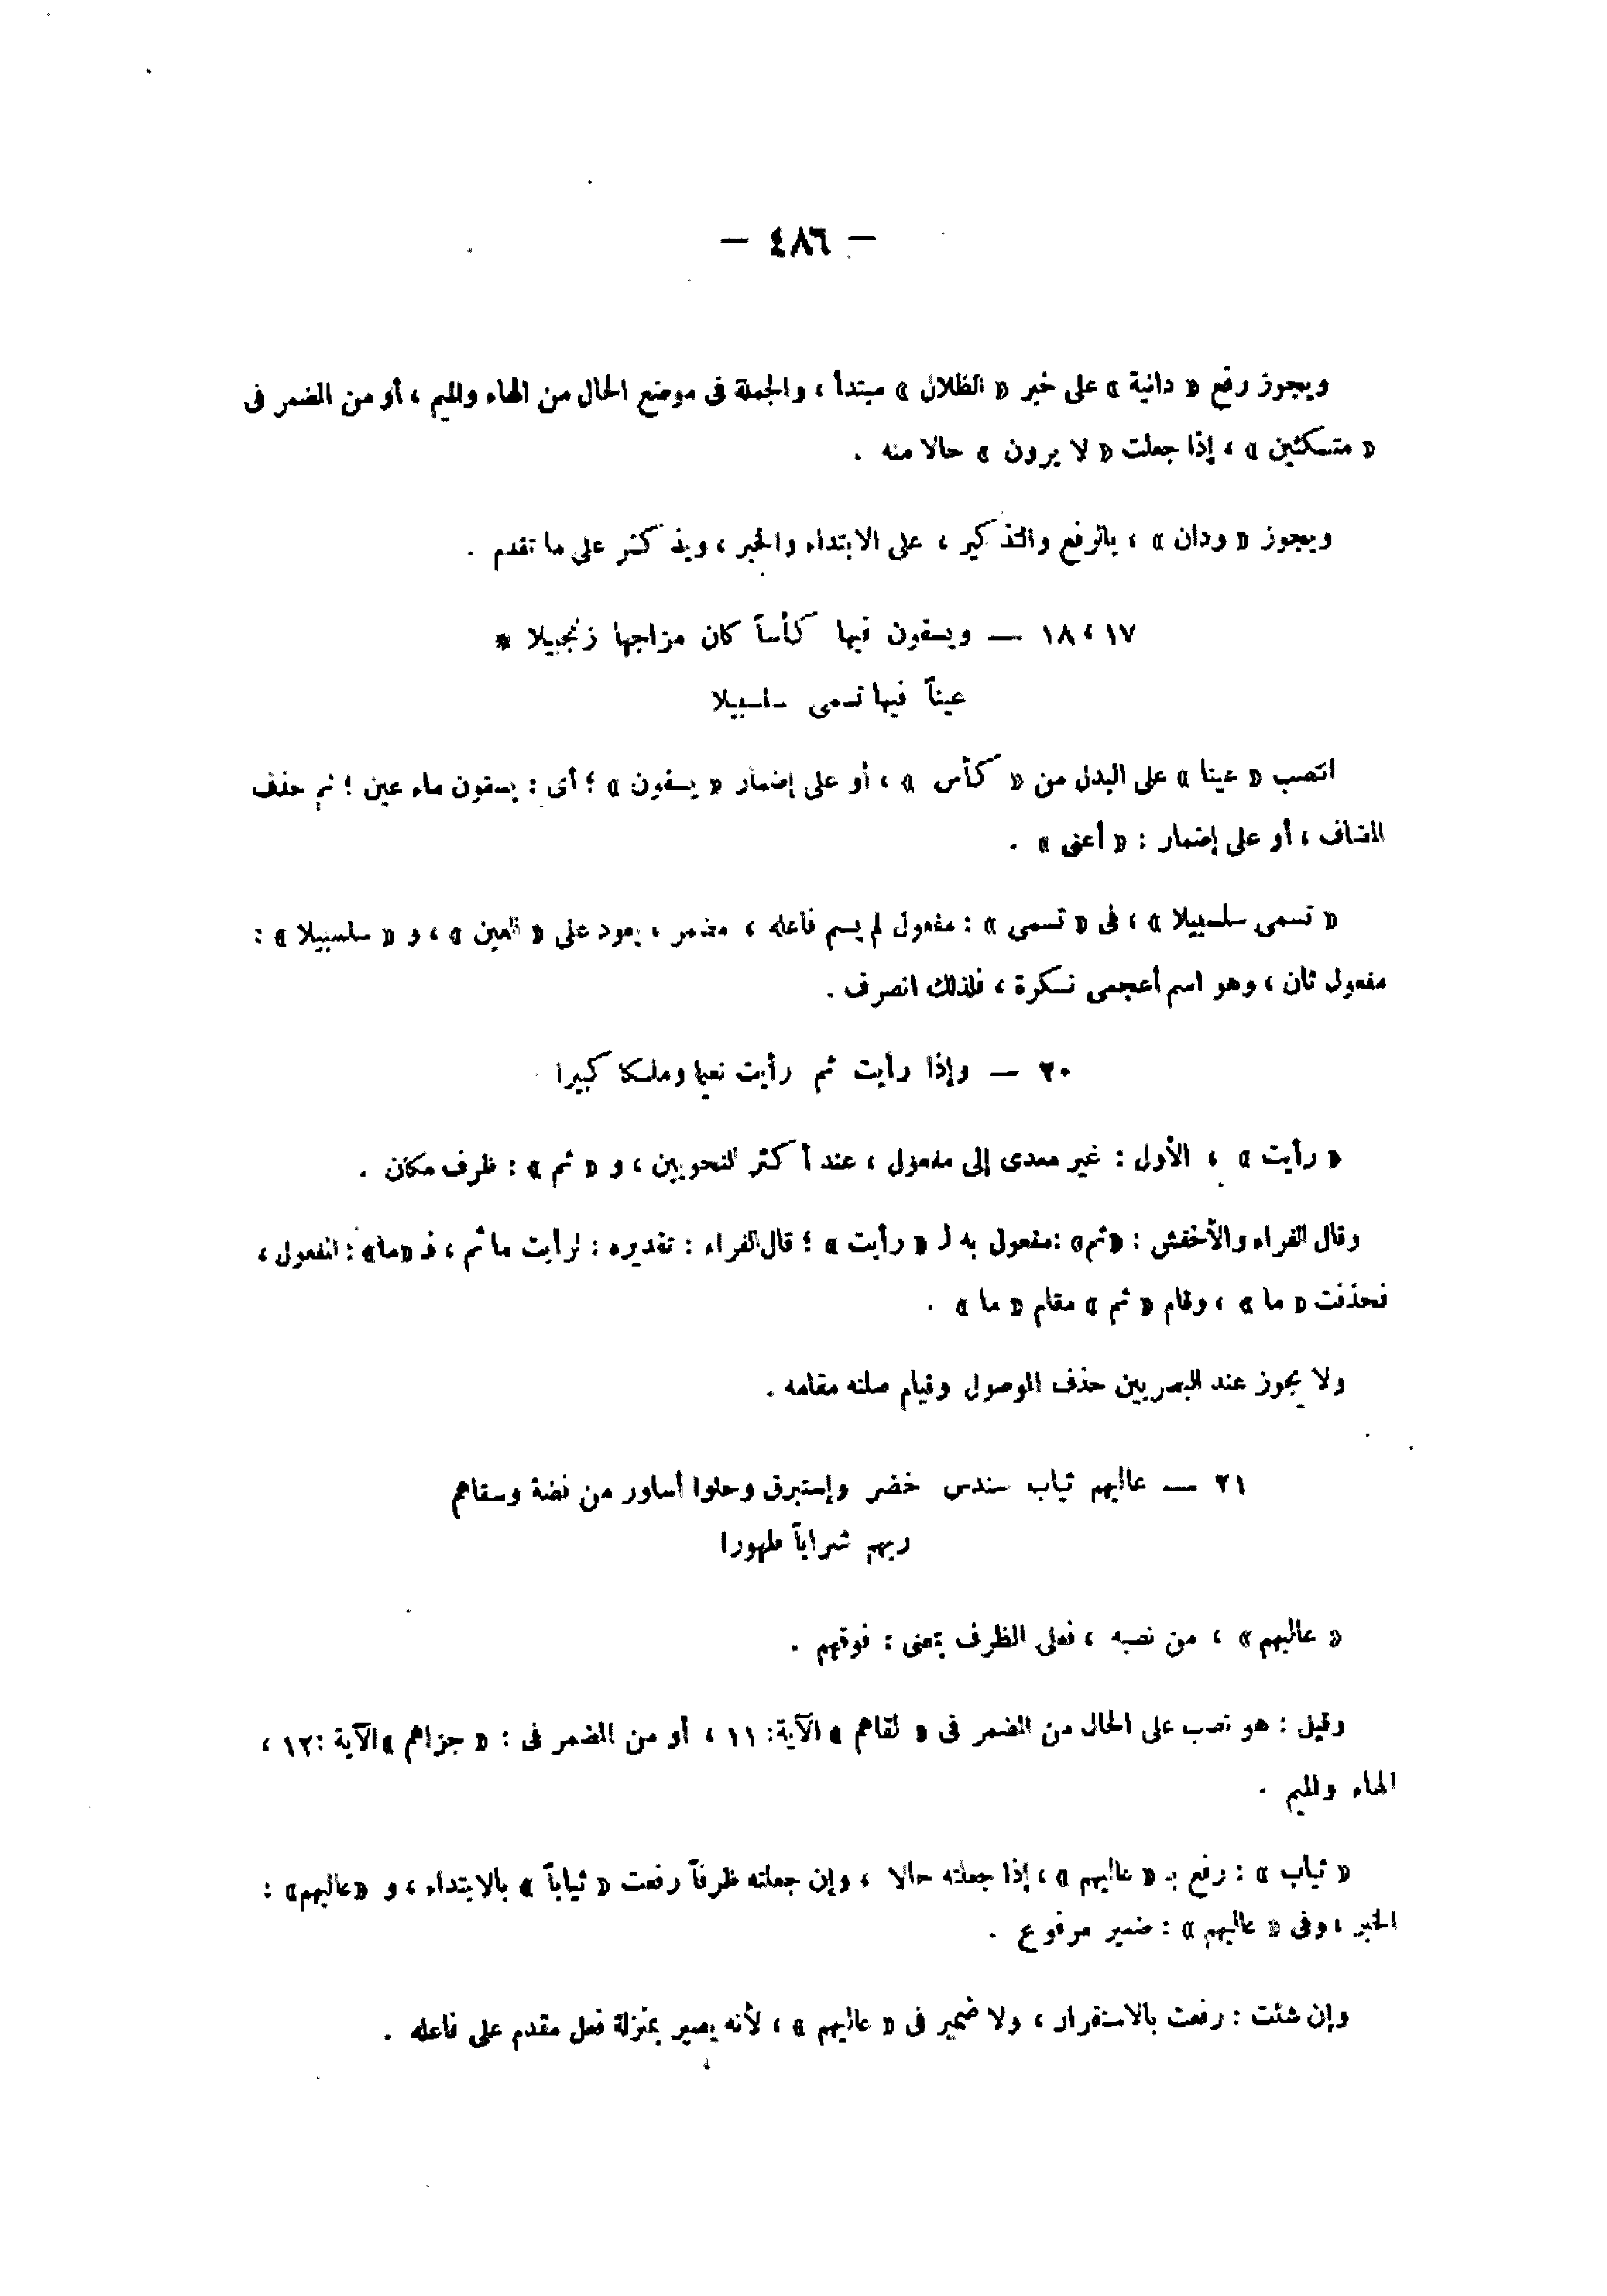 — ٤٨٦ —
ويجوز رفع « دانية » على خبر « الظلال » مبتدأ ، والجملة فى موضع الحال من الهاء والميم ، أو من المضمر فى
« متكئين » ، إذا جعلت « لا يرون » حالا منه .
ويجوز « ودان » ، بالرفع والتذكير ، على الابتداء والخبر ، ويذكر على ما تقدم .
١٧ ، ١٨ — ويسقون فيها كأساً كان مزاجها زنجبيلا *
عيناً فيها تسمى سلسبيلا
انتصب « عينا » على البدل من « كأس » ، أو على إضمار « يسقون » ؛ أى : يسقون ماء عين ؛ ثم حذف
المضاف ، أو على إضمار : « أعنى » .
« تسمى سلسبيلا » ، فى « تسمى » : مفعول لم يسم فاعله ، مضمر ، يعود على « العين » ، و « سلسبيلا » :
مفعول ثان ، وهو اسم أعجمى نكرة ، فلذلك انصرف .
٢٠ — وإذا رأيت ثم رأيت نعيما وملكا كبيرا
« رأيت » ، الأول : غير معدى إلى مفعول ، عند أكثر النحويين ، و « ثم » : ظرف مكان .
وقال الفراء والأخفش : «ثم» :مفعول به لـ « رأيت » ؛ قال الفراء : تقديره : لرأيت ما ثم ، فـ «ما» : المفعول ،
فحذفت « ما » ، وقام « ثم » مقام « ما » .
ولا يجوز عند البصريين حذف الموصول وقيام صلته مقامه .
٢١ — عاليهم ثياب سندس خضر وإستبرق وحلوا أساور من فضة وسقاهم
ربهم شراباً طهورا
« عاليهم » ، من نصبه ، فعلى الظرف بمعنى : فوقهم .
وقيل : هو نصب على الحال من المضمر فى « لقاهم » الآية : ١١ ، أو من المضمر فى : « جزاهم » الآية :١٢ ،
الهاء والميم .
« ثياب » : رفع بـ « عاليهم » ، إذا جعلته حالا ، وإن جعلته ظرفاً رفعت « ثياباً » بالابتداء ، و «عاليهم» :
الخبر ، وفى « عاليهم » : ضمير مرفوع .
وإن شئت : رفعت بالاستقرار ، ولا ضمير فى « عاليهم » ، لأنه يصير بمنزلة فعل مقدم على فاعله .